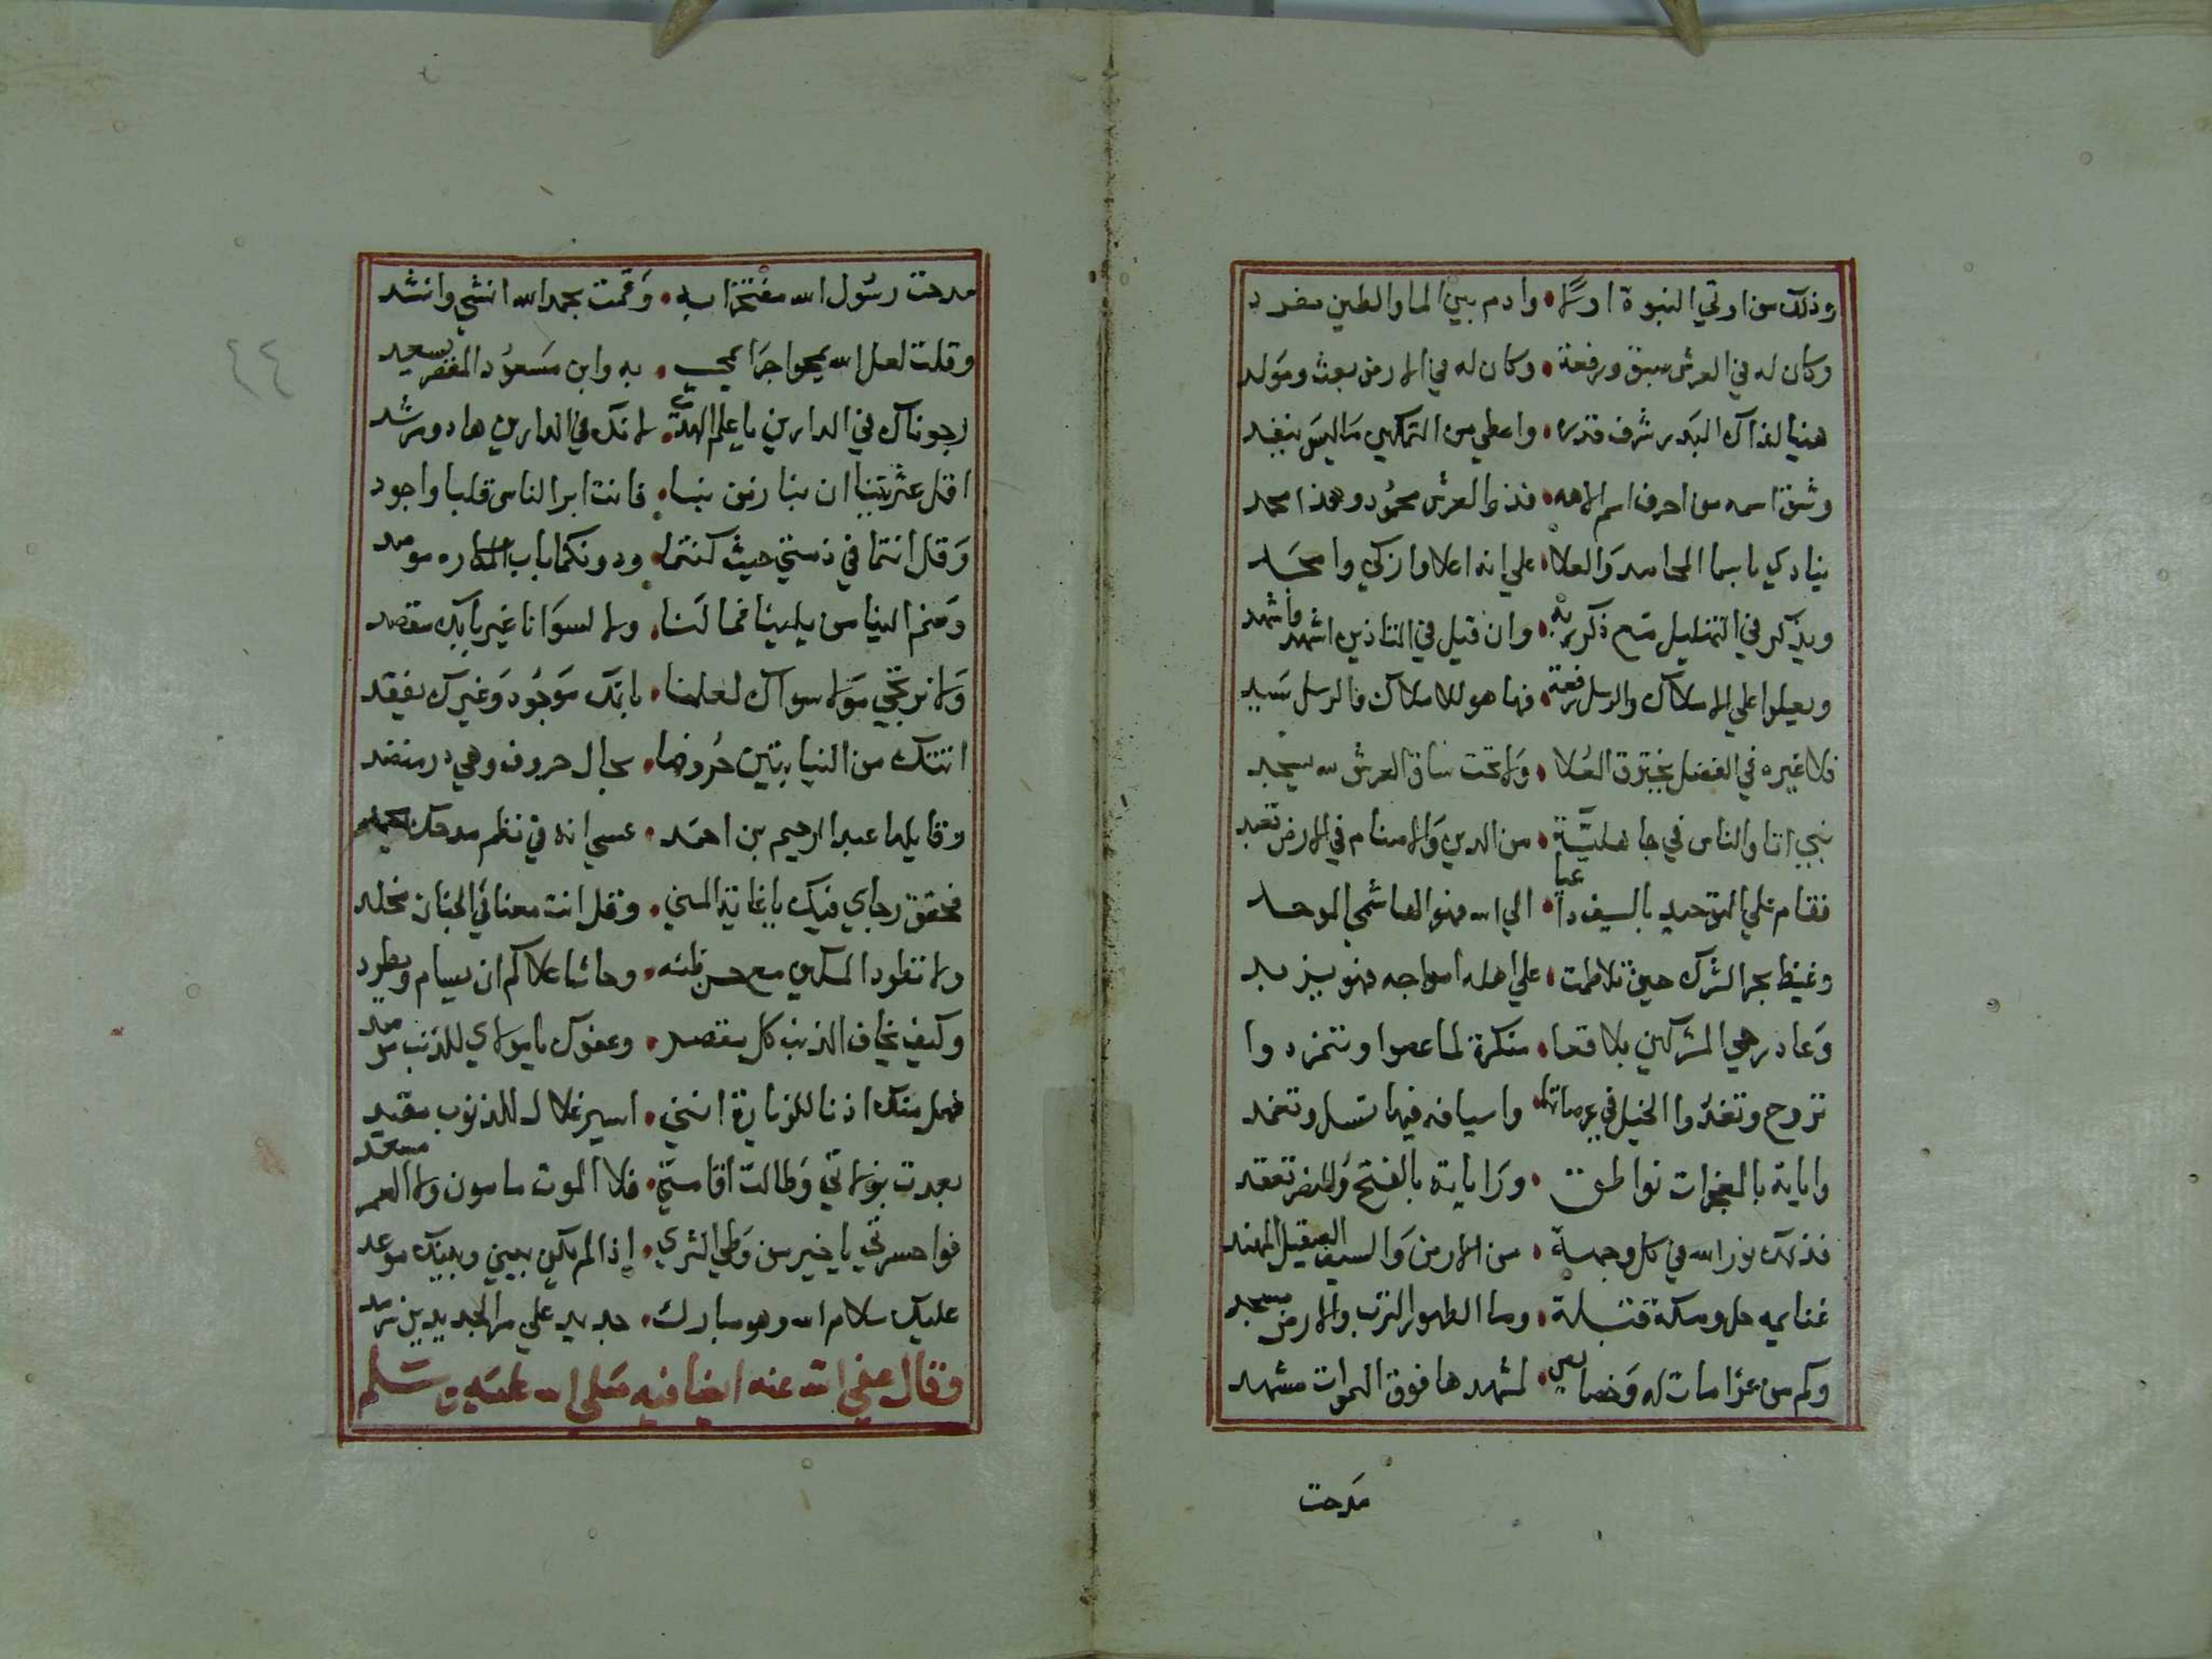 وذلك من اوتي النبوة اولا • وادم بين الما والطين مفرد
وكان له في العرش سبق ورفعة • وكان له في الارض بعث ومولد
هنيا لذاك البدر شرف قدره • واعطي من التمكين ماليس ينفد
وشق اسمه من احرف اسم الاهه • فذو العرش محمود وهذا محمد
ينادي باسما المحامد والعلا • علي انه اعلا وازكي وامجد
ويذكر في التهليل مع ذكر ربه • وان قيل في التاذين اشهد فاشهد
ويعلوا علي الاملاك والرسل رفعة • فها هو للاملاك فالرسل سيد
فلا غيره في الفضل يخترق العلا • ولا تحت ساق العرش لله يسجد
نبي اتا والناس في جاهلية • من الدين والاصنام في الارض تعبد
فقام علي التوحيد بالسيف داعيا • الي الله فهو الهاشمي الموحد
وغيظ بحر الشرك حين تلاطمت • علي اهله امواجه فهو يزبد
وعاد رهي المشركين بلاقعا • منكرة لما عصوا وتمردوا
تروح وتغدوا الخيل في عرصاتها • واسيافه فيها تسل وتغمد
واياته بالمعجزات نواطق • وراياته بالفتح والنصر تعقد
فذلك نور الله في كل وجهة • من الارض والسيف الصقيل المهند
غنايمه حل ومكة قبلة • وما الطهور الترب والارض مسجد
وكم من عزامات له وخصايص • لمشهدها فوق السموات مشهد
مدحت
٤٤
مدحت رسول الله مفتخرا به • وقمت بحمد الله انشي وانشد
وقلت لعل الله يمحوا جرايمي • به وابن مسعود المقصر يسعد
رجوناك في الدارين يا علم الهدي • لانك في الدارين هاد ومرشد
اقل عثرتينا ان بنا زمن نبا • فانت ابر الناس قلبا واجود
وقل انتما في ذمتي حيث كنتما • ودونكما باب المكاره موصد
وضم الينا من يلينا فما لنا • ولا لسوانا غير بابك مقصد
ولا نرتجي مولا سواك لعلمنا • بانك موجود وغيرك يفقد
اتتك من النيابتين حروفها • بحال حروف وهي در منضد
وقايلها عبد الرحيم بن احمد • عسي انه في نظم مدحك
فحقق رجاي فيك يا غاية المني • وقل انت معنا في الجنان مخلد
ولا تطرد المسكين مع حسن ظنه • وحاشا علاكم ان يسام ويطرد
وكيف يخاف الذنب كل مقصر • وعفوك يا مولاي للذنب مرصد
فهل منك اذنا للزيارة انني • اسير غلال للذنوب مقيد
بعدت بزلاتي وطالت اقامتي • فلا الموت مامون ولا العمر مسعد
فواحسرتي يا خير من وطي الثري • اذا لم يكن بيني وبينك موعد
عليك سلام الله وهو مبارك • جديد علي مر الجديدين سرمد
وقال عفي الله عنه ايضا فيه صلي الله عليه وسلم